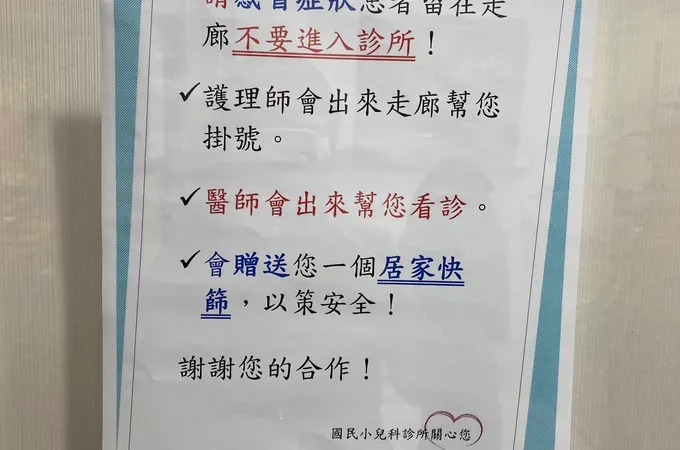 請感冒症狀患者留在走
廊不要進入診所！
✓護理師會出來走廊幫您
掛號。
✓醫師會出來幫您看診。
✓會贈送您一個居家快
篩，以策安全！
謝謝您的合作！
國民小兒科診所關心您